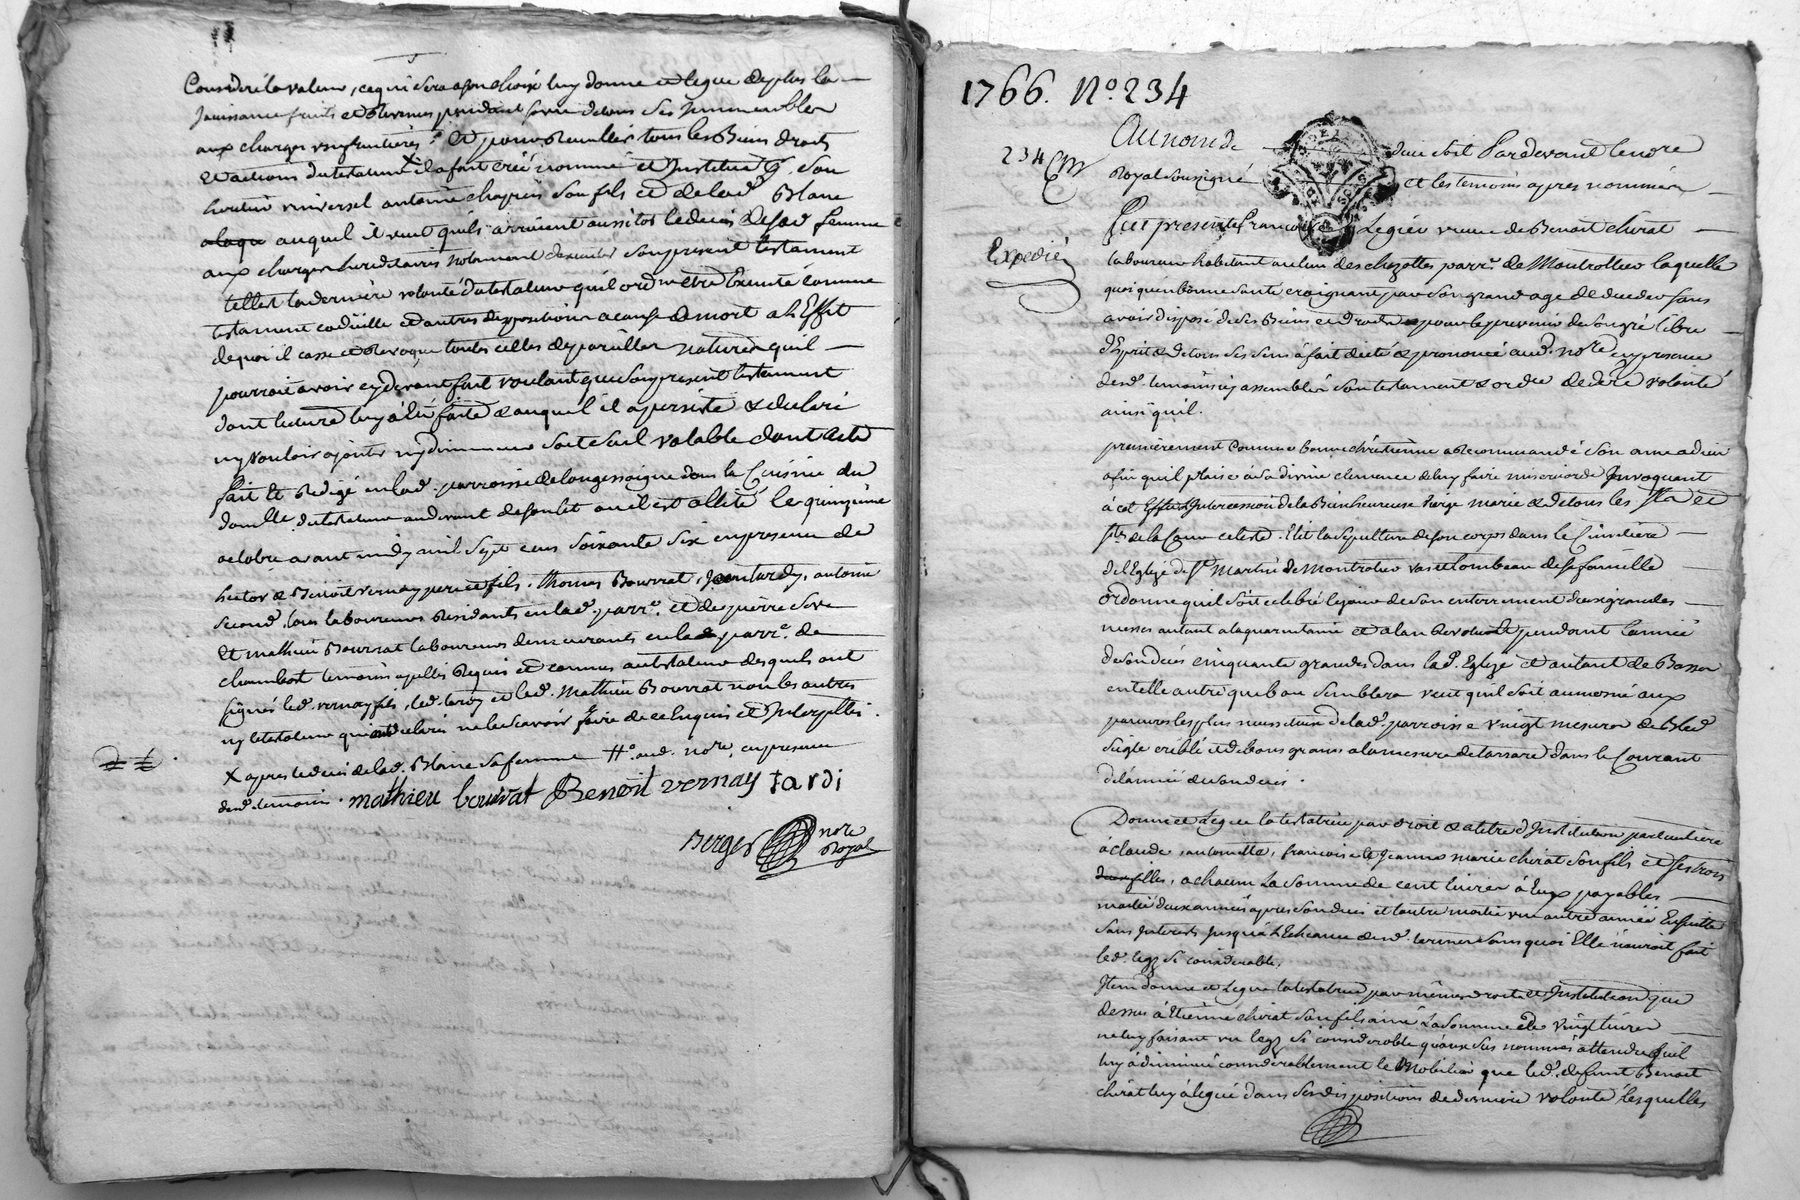 Consideré la valeur, ce qui sera a son choix luy donne et legue de plus la
Jouissance fruits et Revenus pendant sa vie de tous ses Immeubles
aux charges usufruitieres. Et pour Recueillir tous les Biens droits
et actions du testateur il a fait créé nommé et Institué son
heritier universel antoine chapuis son fils et de lad. Blanc
auquel il veut qu'ils arrivent aussitot le deces de sad. femme
aux charges hereditaires notament d'executer son present testament
telle est la derniere volonté du testateur qu'il ordonne être Executé comme
testament codicille et autres dispositions a cause de mort a L'Effet
de quoi il casse et Revoque toutes celles de pareilles natures qu'il
pourrait avoir cy devant fait voulant que son present testament
dont lecture luy a été faite et auquel il a persisté et declaré
ny vouloir ajouter ny diminuer soit seul valable dont acte
fait et Redigé en lad. parroisse de longessaigne dans la Cuisine du
domille du testateur au devant de son lit ou il est allité le quinzieme
octobre avant midy mil sept cens soixante six en presence de
hector et Benoit vernay pere et fils, thomas Bourrat, Jean tardy, antoine
second, tous laboureurs Residants en lad. parr.e et de pierre
Et mathieu Bourrat laboureurs demeurants en la parr.e de
chambost temoins appellés Requis et connus au testateur desquels ont
signés led. vernay fils, led. et led. Mathieu Bourrat non les autres
ny le testateur qui ont declaré ne le scavoir faire de ce Enquis et Interpellés.
X apres le deces de lad. Blanc sa femme # aud. no.re en presence
desd. temoins. mathieu bourrat Benoit vernay tardi
Berger no.re
Royal
1766. N.o 234
234
Au nom de dieu soit Par devant le no.re
Royal soussigné et les temoins apres nommés
Expedié
Fut presente Francoise Legier veuve de Benoit chirat
laboureur habitant au lieu des chazottes parr.e de Montrottier laquelle
quoi qu'en bonne santé craignant par son grand age de deceder sans
avoir disposé de ses Biens et droits et pour le prevenir de son gré libre
d'Esprit et de tous ses sens à fait dicté et prononcé aud. no.re en presence
desd. temoins cy assemblés son testament et ordre de dere volonté
ainsi qu'il.
premierement comme bonne chretienne a Recommandé son ame a dieu
afin qu'il plaise à sa divine clemence de luy faire misericorde Invoquant
à cet Effet L'Intercession de la Bienheureuse vierge marie et de tous les Sts et
stes de la Cour celeste. Elit la sepulture de son corps dans le Cimetiere
de l'Eglize de St Martin de Montrottier vas et tombeau de sa famille
ordonne qu'il soit celebré le jour de son enterrement deux grandes
messes autant a la quarantaine et a l'an Revolu et pendant l'année
de son deces cinquante grandes dans lad. Eglize et autant de Basses
en telle autre que bon semblera veut qu'il soit aumosné aux
pauvres les plus necessiteux de lad. parroisse vingt mesures de Bled
seigle criblé et de bons grains a la mesure de tarare dans le Courant
de l'année de son deces.
Donne et Legue la testatrice par droit et a titre d'Institution particuliere
à claude, antoinette, francoise et Jeanne marie chirat son fils et ses trois
filles, a chacun La somme de cent livres à Eux payables
moitié deux années apres son deces et l'autre moitié une autre année Ensuitte
sans Interets jusqu'à L'Echeance desd. termes sans quoi Elle n'auroit fait
led. legs si considerable.
Item donne et Legue la testatrice par mêmes droits et Institution que
dessus à Etienne chirat son fils ainé La somme de vingt livres
ne luy faisant un legs si considerable qu'aux sus nommés attendu qu'il
luy à diminué considerablement le Mobilier que led. defunt Benoit
chirat luy à legué dans ses dispositions de derniere volonté lesquelles